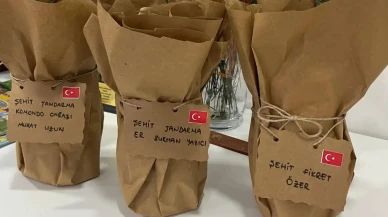 ŞEHİT JANDARMA
KOMANDO ÇAVUŞ
MURAT UZUN
ŞEHİT JANDARMA
ER BURHAN YABICI
ŞEHİT FİKRET
ÖZER